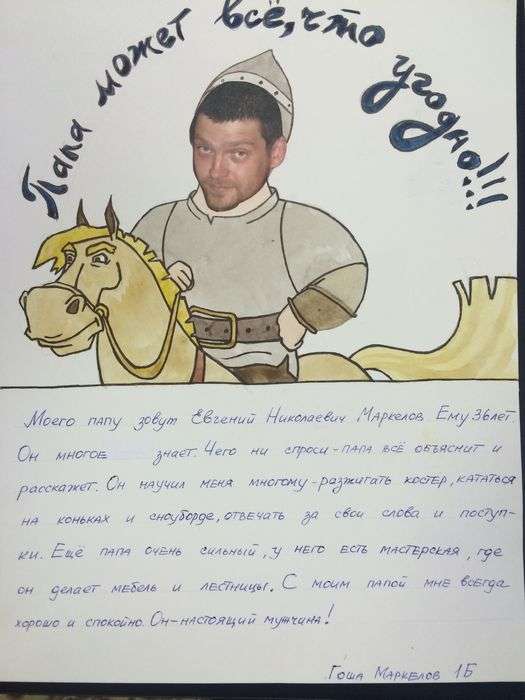 Папа может всё, что угодно!!!
Моего папу зовут Евгений Николаевич Маркелов. Ему 36 лет.
Он многое знает. Чего ни спроси - папа всё объяснит и
расскажет. Он научил меня многому - разжигать костёр, кататься
на коньках и сноуборде, отвечать за свои слова и поступ-
ки. Ещё папа очень сильный, у него есть мастерская, где
он делает мебель и лестницы. С моим папой мне всегда
хорошо и спокойно. Он - настоящий мужчина!
Гоша Маркелов 1Б